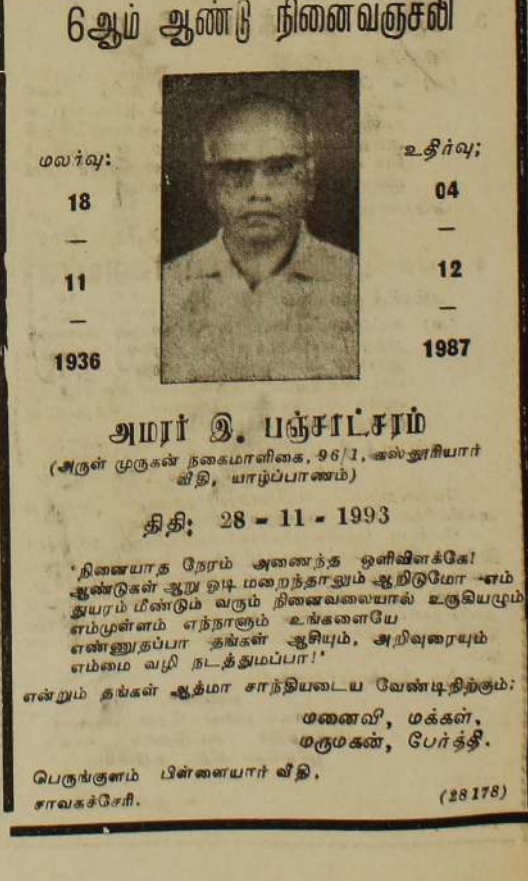 6ஆம் ஆண்டு நினைவஞ்சலி
மலர்வு:
18
—
11
—
1936
உதிர்வு;
04
—
12
—
1987
அமரர் இ. பஞ்சாட்சரம்
(அருள் முருகன் நகைமாளிகை, 96/1, கஸ்தூரியார்
வீதி, யாழ்ப்பாணம்)
திதி: 28 - 11 - 1993
'நினையாத நேரம் அணைந்த ஒளிவிளக்கே!
ஆண்டுகள் ஆறு ஓடி மறைந்தாலும் ஆறிடுமோ எம்
துயரம் மீண்டும் வரும் நினைவலையால் உருகியழும்
எம்முள்ளம் எந்நாளும் உங்களையே
எண்ணுதப்பா தங்கள் ஆசியும், அறிவுரையும்
எம்மை வழி நடத்துமப்பா!'
என்றும் தங்கள் ஆத்மா சாந்தியடைய வேண்டிநிற்கும்:
மனைவி, மக்கள்,
மருமகன், பேர்த்தி.
பெருங்குளம் பிள்ளையார் வீதி,
சாவகச்சேரி.
(28178)